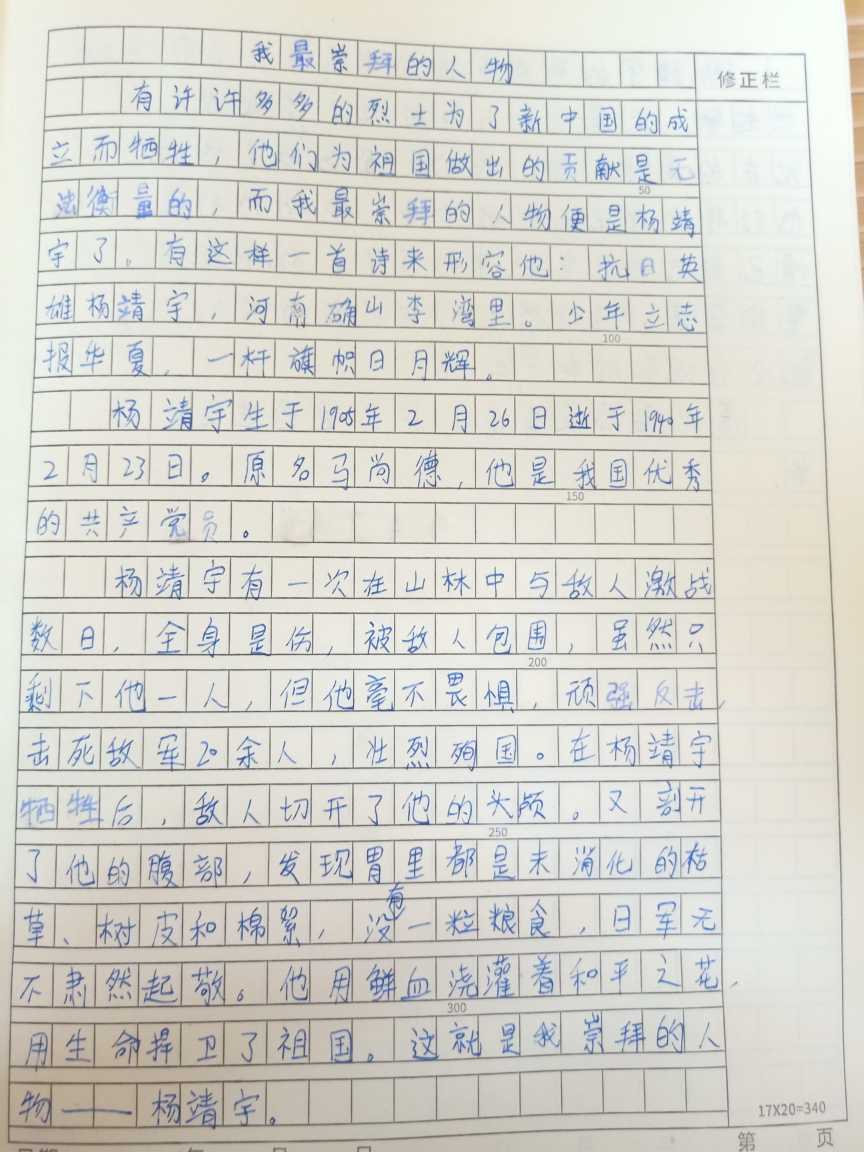 我最崇拜的人物
修正栏
有许许多多的烈士为了新中国的成
立而牺牲，他们为祖国做出的贡献是无
50
法衡量的，而我最崇拜的人物便是杨靖
宇了。有这样一首诗来形容他：抗日英
雄杨靖宇，河南确山李湾里。少年立志
100
报华夏，一杆旗帜日月辉。
杨靖宇生于1905年2月26日逝于1940年
2月23日。原名马尚德，他是我国优秀
150
的共产党员。
杨靖宇有一次在山林中与敌人激战
数日，全身是伤，被敌人包围，虽然只
200
剩下他一人，但他毫不畏惧，顽强反击，
击死敌军20余人，壮烈殉国。在杨靖宇
牺牲后，敌人切开了他的头颅。又剖开
250
了他的腹部，发现胃里都是未消化的枯
草、树皮和棉絮，没有一粒粮食，日军无
不肃然起敬。他用鲜血浇灌着和平之花，
300
用生命捍卫了祖国。这就是我崇拜的人
物——杨靖宇。
17X20=340
第 页